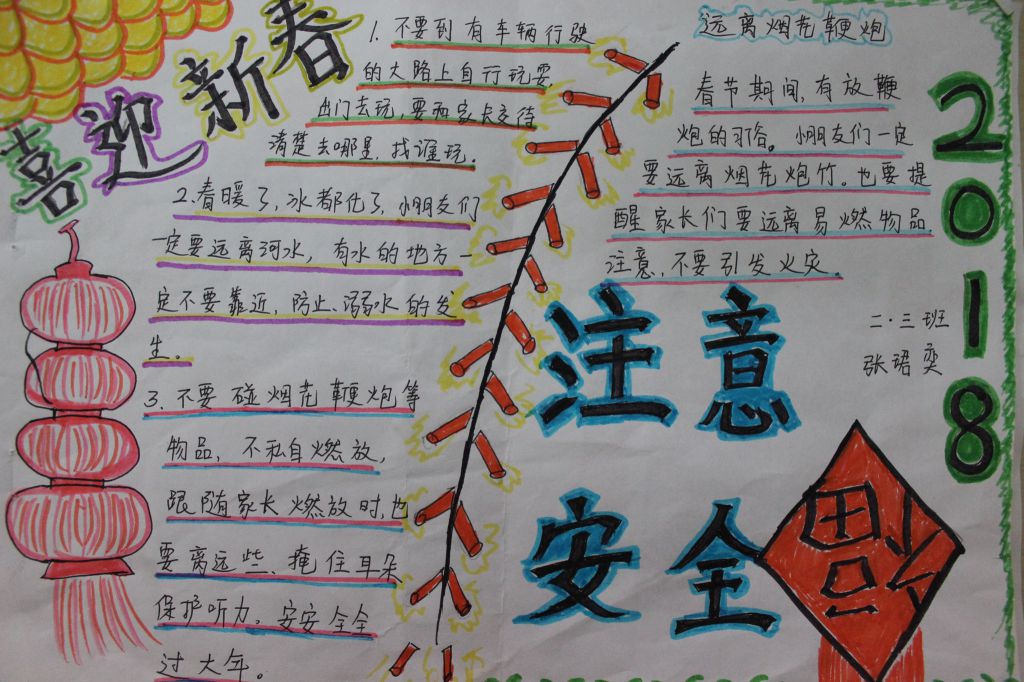 喜迎新春
1. 不要到有车辆行驶
的大路上自行玩耍,
出门去玩,要和家长交待
清楚去哪里,找谁玩.
2.春暖了,冰都化了,小朋友们
一定要远离河水,有水的地方一
定不要靠近,防止溺水的发
生。
3.不要碰烟花鞭炮等
物品,不私自燃放,
跟随家长燃放时,也
要离远些、掩住耳朵
保护听力。安安全全
过大年。
远离烟花鞭炮
春节期间,有放鞭
炮的习俗。小朋友们一定
要远离烟花炮竹。也要提
醒家长们要远离易燃物品.
注意,不要引发火灾.
2018
二·三班
张珺奕
注意
安全
福